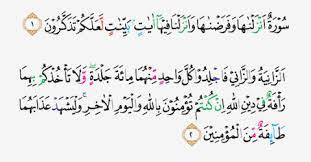 سُورَةٌ اَنْزَلْنٰهَا وَفَرَضْنٰهَا وَاَنْزَلْنَا فِيْهَآ اٰيٰتٍۢ بَيِّنٰتٍ لَّعَلَّكُمْ تَذَكَّرُوْنَ ١
اَلزَّانِيَةُ وَالزَّانِيْ فَاجْلِدُوْا كُلَّ وَاحِدٍ مِّنْهُمَا مِائَةَ جَلْدَةٍ ۖ وَّلَا تَأْخُذْكُمْ بِهِمَا
رَأْفَةٌ فِيْ دِيْنِ اللّٰهِ اِنْ كُنْتُمْ تُؤْمِنُوْنَ بِاللّٰهِ وَالْيَوْمِ الْاٰخِرِ ۚ وَلْيَشْهَدْ عَذَابَهُمَا
طَاۤىِٕفَةٌ مِّنَ الْمُؤْمِنِيْنَ ٢